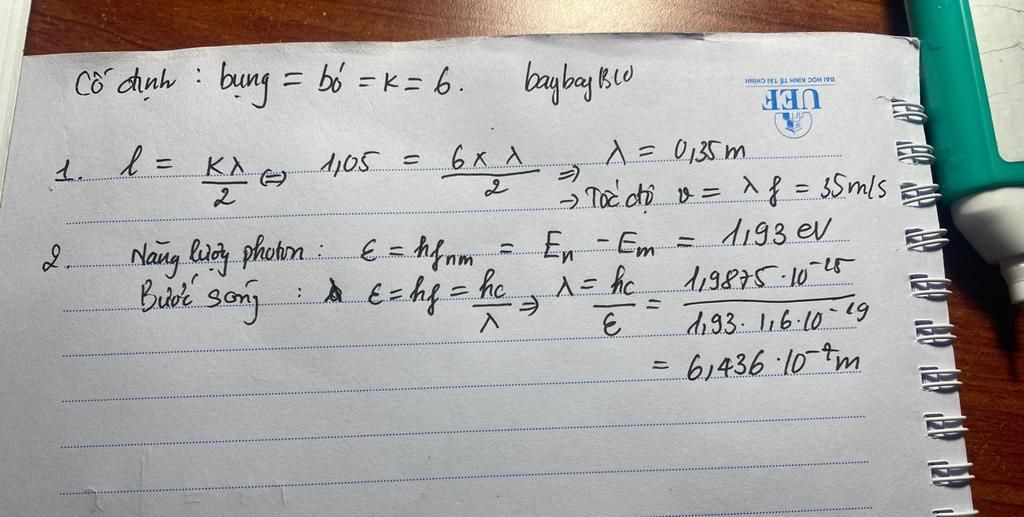 Cố định : bụng = bó = K = 6. baybayBlU
ĐẠI HỌC KINH TẾ TÀI CHÍNH
UEF
1. l = Kλ/2 ⇔ 1,05 = 6 x λ/2 ⇒ λ = 0,35 m
→ Tốc độ v = λ f = 35m/s
2. Năng lượng photon : ε = hfnm = En - Em = 1,93 eV
Bước sóng : ε = hf = hc/λ ⇒ λ = hc/ε = 1,9875 · 10⁻²⁵/1,93 · 1,6 · 10⁻¹⁹
= 6,436 · 10⁻⁷ m